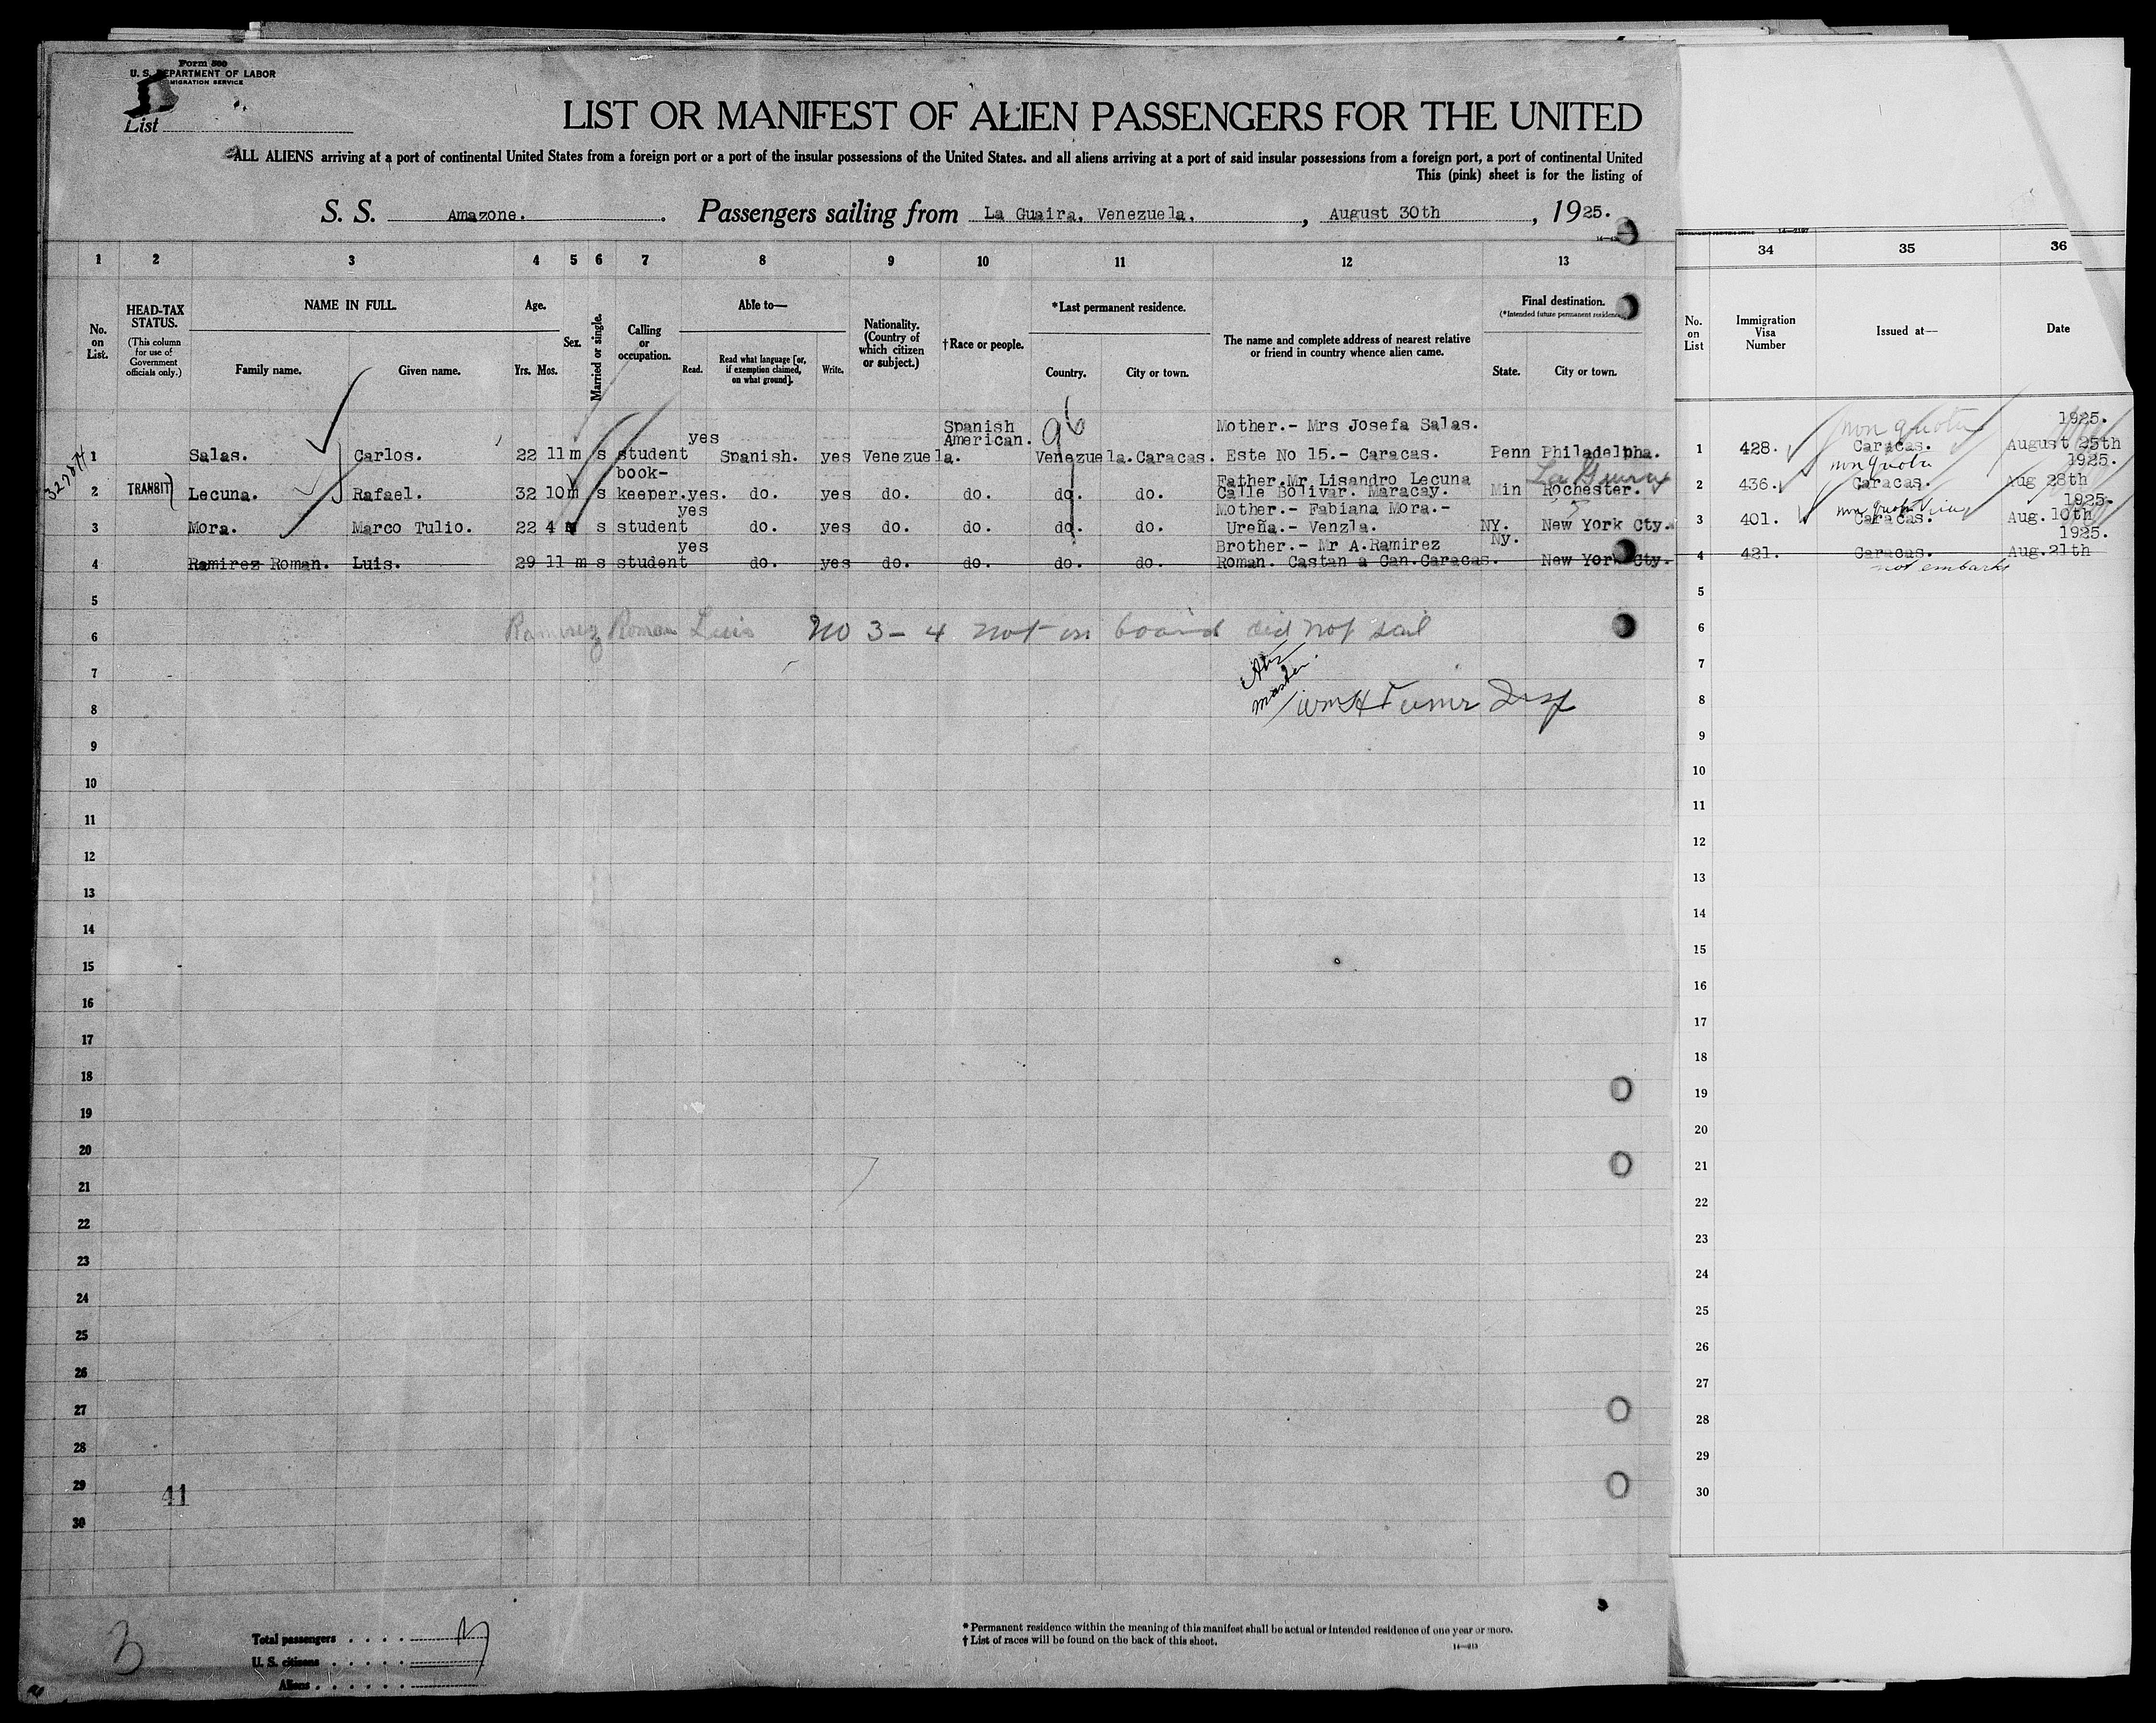 Form 500
U. S. DEPARTMENT OF LABOR
IMMIGRATION SERVICE
List
LIST OR MANIFEST OF ALIEN PASSENGERS FOR THE UNITED
ALL ALIENS arriving at a port of continental United States from a foreign port or a port of the insular possessions of the United States, and all aliens arriving at a port of said insular possessions from a foreign port, a port of continental United
This (pink) sheet is for the listing of
S. S. Amazone. Passengers sailing from La Guaira, Venezuela, August 30th, 1925.
1 2 3 4 5 6 7 8 9 10 11 12 13 34 35 36
No. on List.
HEAD-TAX STATUS.
(This column for use of Government officials only.)
NAME IN FULL.
Family name. Given name.
Age.
Yrs. Mos.
Sex.
Married or single.
Calling or occupation.
Able to—
Read. Read what language [or, if exemption claimed, on what ground]. Write.
Nationality. (Country of which citizen or subject.)
†Race or people.
*Last permanent residence.
Country. City or town.
The name and complete address of nearest relative or friend in country whence alien came.
Final destination.
(*Intended future permanent residence.)
State. City or town.
No. on List
Immigration Visa Number
Issued at—
Date
1 Salas. Carlos. 22 11 m s student yes Spanish. yes Venezuela. Spanish American. Venezuela. Caracas. Mother.- Mrs Josefa Salas. Este No 15.- Caracas. Penn Philadelpha. 1 428. non quota Caracas. August 25th 1925.
2 TRANSIT Lecuna. Rafael. 32 10 m s book-keeper. yes. do. yes do. do. do. do. Father.Mr Lisandro Lecuna Calle Bolivar. Maracay. Min Rochester. La Guaira 2 436. non quota Caracas. Aug 28th 1925.
3 Mora. Marco Tulio. 22 4 m s student yes do. yes do. do. do. do. Mother.- Fabiana Mora.- Ureña.- Venzla. NY. New York Cty. 3 401. non quota Caracas. Aug. 10th 1925.
4 Ramirez Roman. Luis. 29 11 m s student yes do. yes do. do. do. do. Brother.- Mr A.Ramirez Roman. Castan a Can.Caracas. Ny. New York Cty. 4 421. Caracas. Aug.21th 1925.
not embark
5 5
6 Ramirez Roman Luis No 3-4 not on board did not sail 6
7 7
master
8 Wm H Turner 8
9 9
10 10
11 11
12 12
13 13
14 14
15 15
16 16
17 17
18 18
19 19
20 20
21 21
22 22
23 23
24 24
25 25
26 26
27 27
28 28
29 29
41
30 30
3
Total passengers
U. S. citizens
Aliens
*Permanent residence within the meaning of this manifest shall be actual or intended residence of one year or more.
†List of races will be found on the back of this sheet.